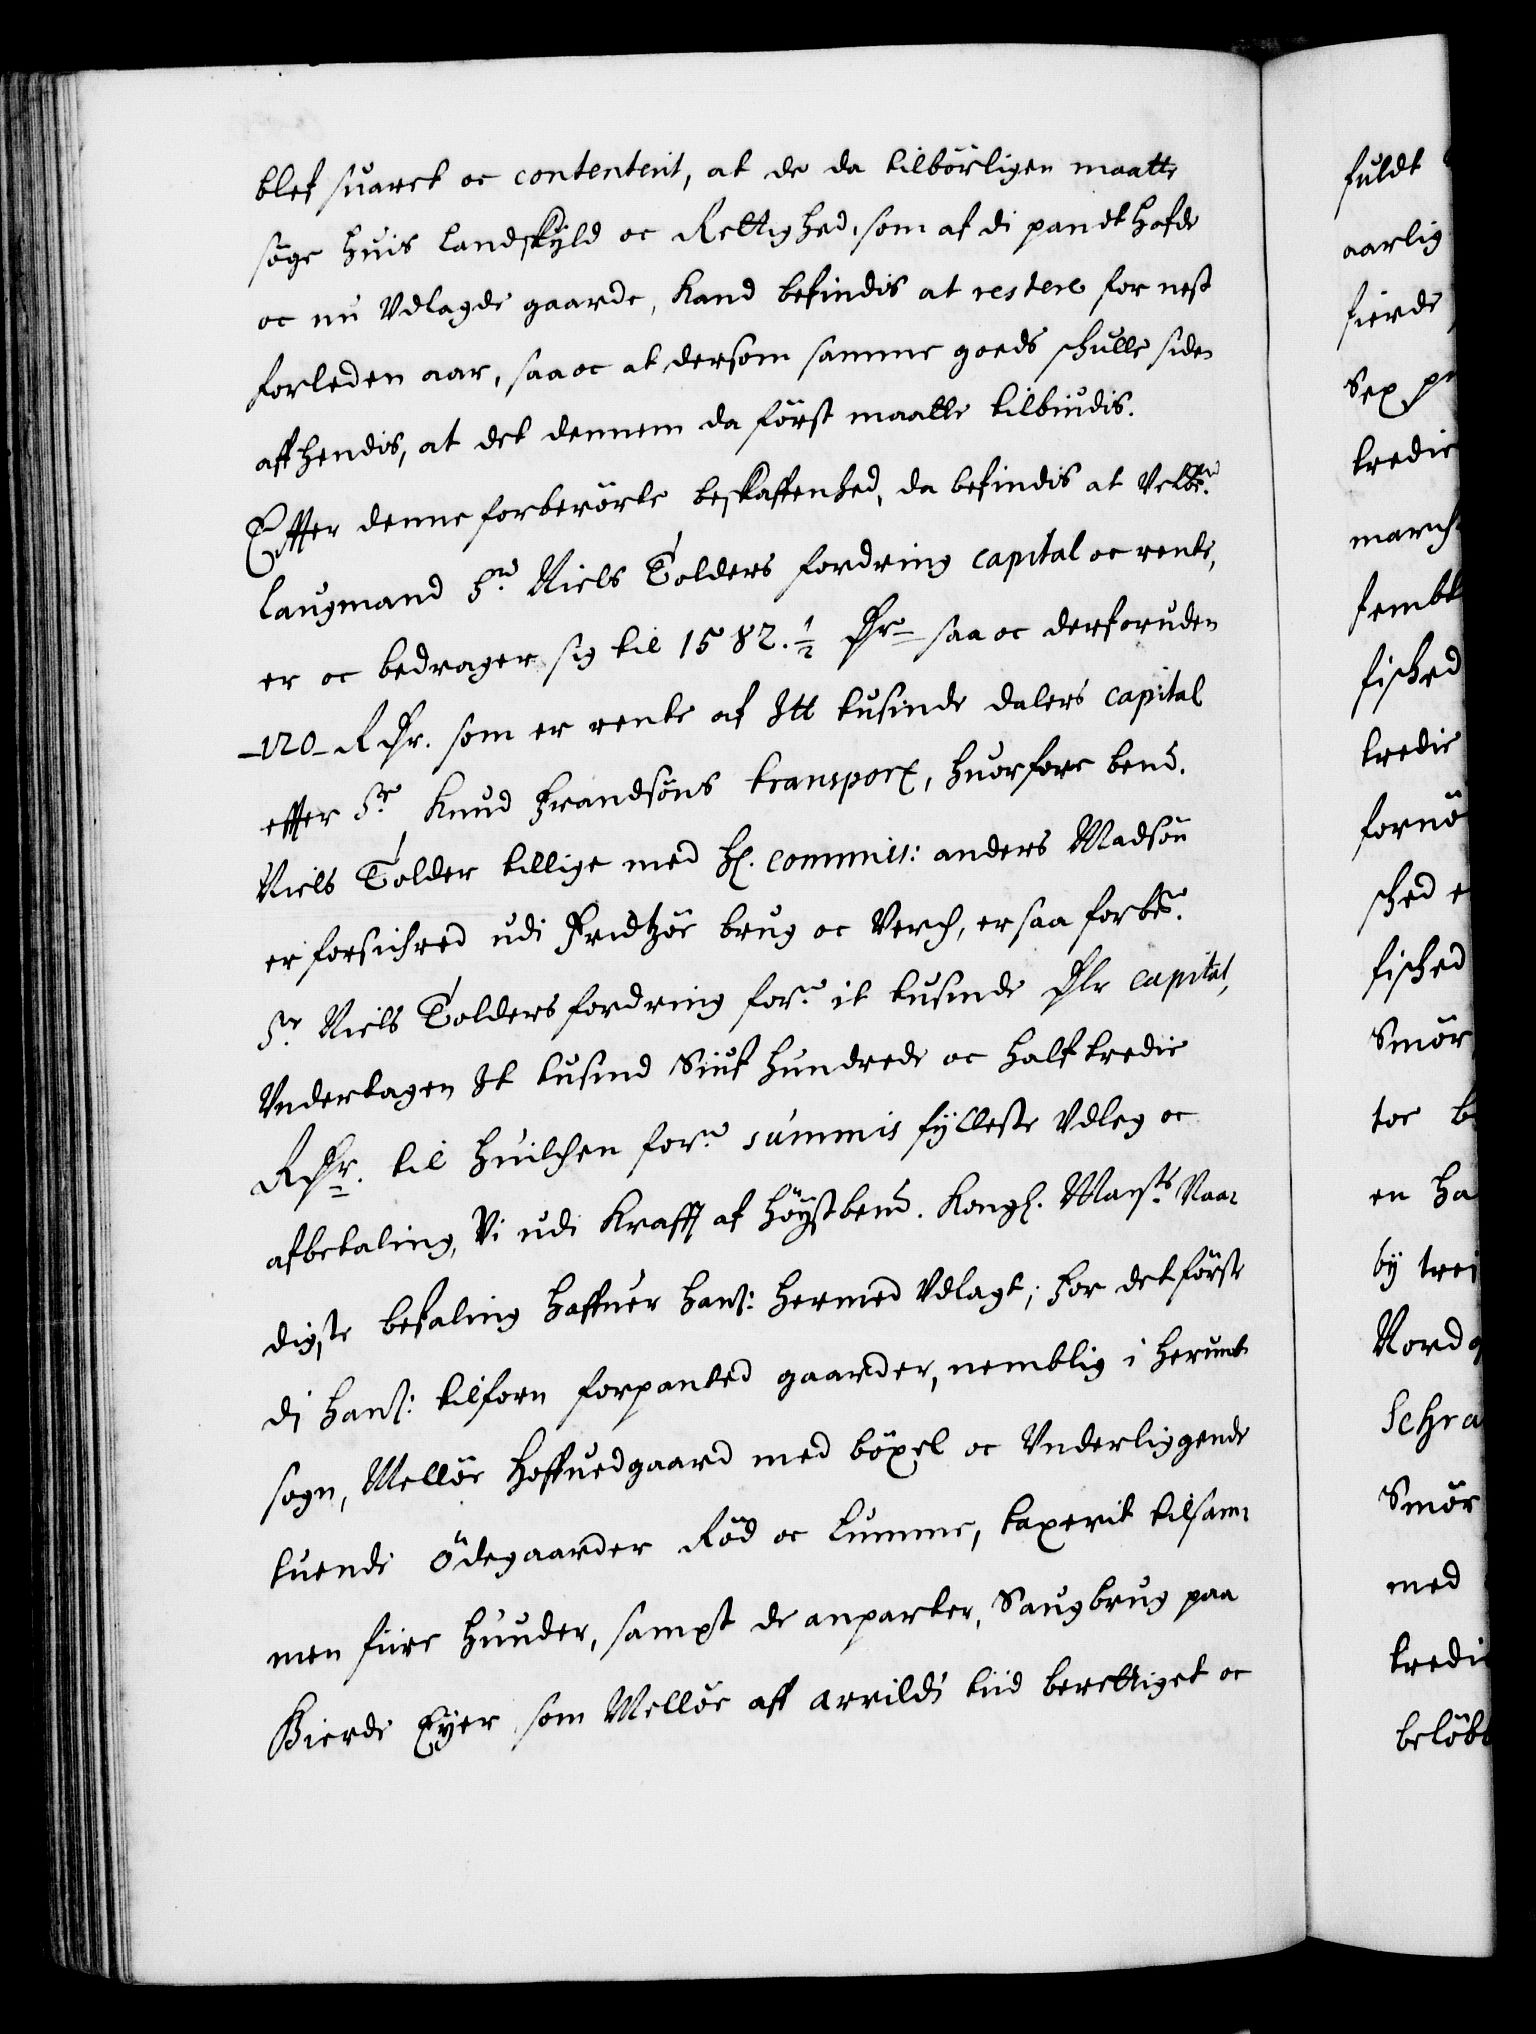 blef suaret oc contenterit, at de da tilbörligen maatte
söge huis landskyld oc Rettighed, som af di pandthafde
oc nu Vdlagde gaarde, kand befindis at restere for nest
forleden aar, saa oc at dersom samme goeds schulle siden
affhendis, at det dennem da först maatte tilbiudis.
Effter denne forberörte beskaffenhed, da befindis at Velbe.
Laugmand Sr. Niels Tolders fordring capital oc rente,
er oc bedrager sig til 1582.½ Dr. saa oc derforuden
-120- RDr. som er rente af Itt tusinde dalers capital
effter Sr. Knud Frandsöns transport, huorfore bemt.
Niels Tolder tillige med Hl. commiss: anders Madsön
er forsichred udi Fridtzöe brug oc Verch, er saa forbe.
Sr. Niels Tolders fordring fore. it tusinde Dlr capital,
Vndertagen It tusind Siuf hundrede oc halftredie
RDr. til huilchen fore. summis fylleste Vdleg oc
afbetaling, Vi udi Krafft af höystbemt. Kongl. Mayts. Naa-
digste befaling haffuer hans: hermed Vdlagt, for det förste
di hans: tilforn forpanted gaarder, nemblig i Herumb
sogn, Mellöe Hoffuedgaard med böxel oc Vnderliggende
tuende Ödegaarder Röd oc Lumme, taxerit tilsam-
men fiire Huuder, sampt de anparter, Saugbrug paa
Gierde Eyer som Mellöe aff arrilds tiid berettiget oc
fuldt
aarlig
fierde
Sex
tredie
fisched
tredie
fornö
sched
fisched
Smör
toe
en ha
by trei
Nord
Schra
Smör
med
tredi
belöb